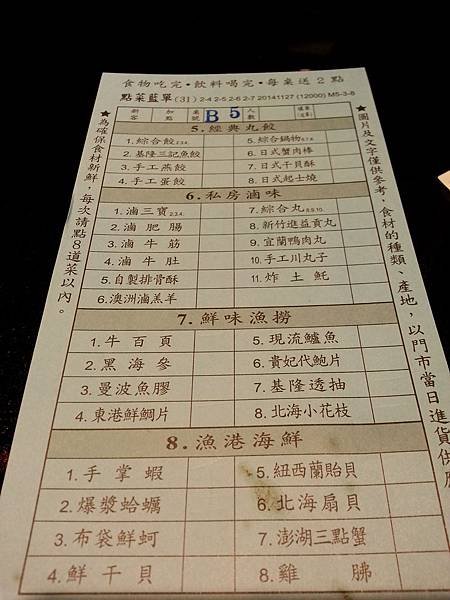 食物吃完·飲料喝完·每桌送2點
點菜藍單(31) 2-4 2-5 2-6 2-7 20141127 (12000) M5-3-8
新客 加點 桌號 B5 人數
5.經典丸餃
1.綜合餃2.3.4.
5.綜合鍋物6.7.8.
2.基隆三記魚餃
6.日式蟹肉棒
3.手工燕餃
7.日式干貝酥
4.手工蛋餃
8.日式起士燒
6.私房滷味
1.滷三寶2.3.4.
7.綜合丸8.9.10.
2.滷肥腸
8.新竹進益貢丸
3.滷牛筋
9.宜蘭鴨肉丸
4.滷牛肚
10.手工川丸子
5.自製排骨酥
11.炸土魠
6.澳洲滷羔羊
7.鮮味漁撈
1.牛百頁
5.現流鱸魚
2.黑海參
6.貴妃代鮑片
3.曼波魚膠
7.基隆透抽
4.東港鮮鯛片
8.北海小花枝
8.漁港海鮮
1.手掌蝦
5.紐西蘭貽貝
2.爆漿蛤蠣
6.北海扇貝
3.布袋鮮蚵
7.澎湖三點蟹
4.鮮干貝
8.雞胇
★為確保食材新鮮，每次請點8道菜以內。
★圖片及文字僅供參考，食材的種類、產地，以門市當日進貨供應